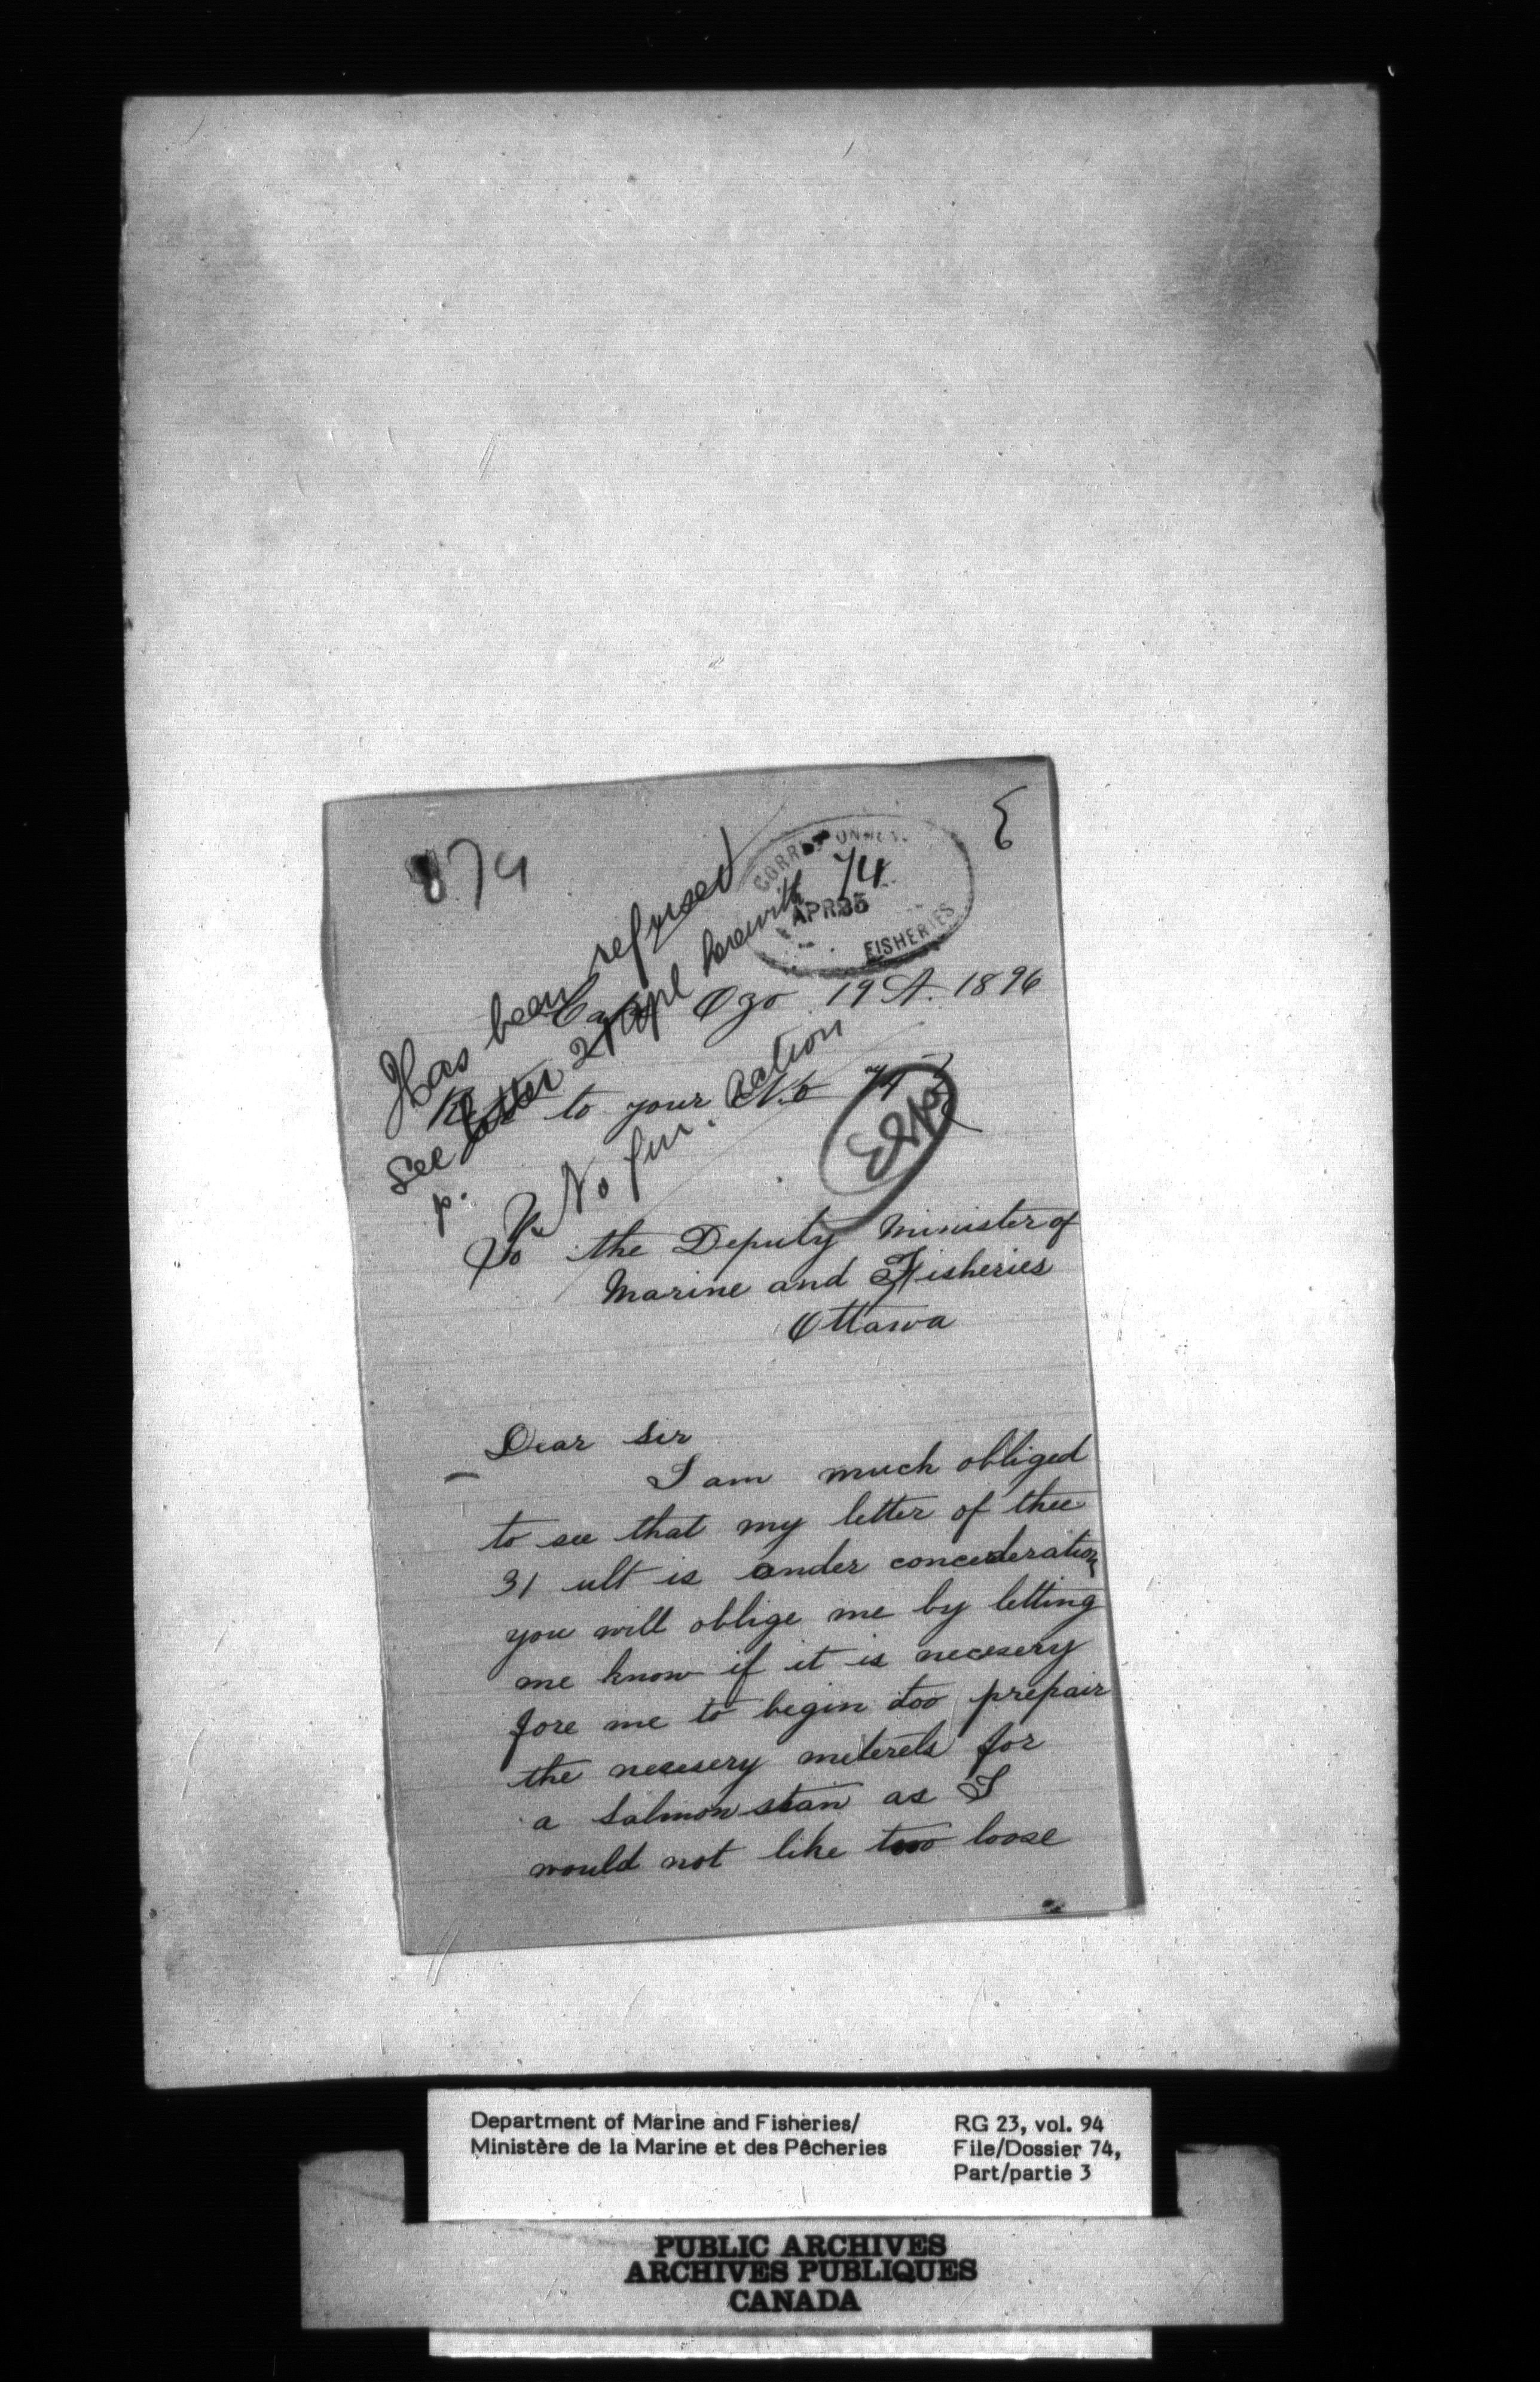 874
CORRESPONDENCE
74
APR 25
FISHERIES
Has been refused
See letter 21 Apl herewith
No fur. action
p.
Cape Ozo 19 A. 1896
Refer to your No 74
To the Deputy Minister of
Marine and Fisheries
Ottawa
Dear Sir
I am much obliged
to see that my letter of thee
31 ult is under concederation
you will oblige me by letting
me know if it is necesery
fore me to begin too prepair
the necesery meterels for
a Salmon stan as I
would not like too loose
Department of Marine and Fisheries/
Ministère de la Marine et des Pêcheries
RG 23, vol. 94
File/Dossier 74,
Part/partie 3
PUBLIC ARCHIVES
ARCHIVES PUBLIQUES
CANADA